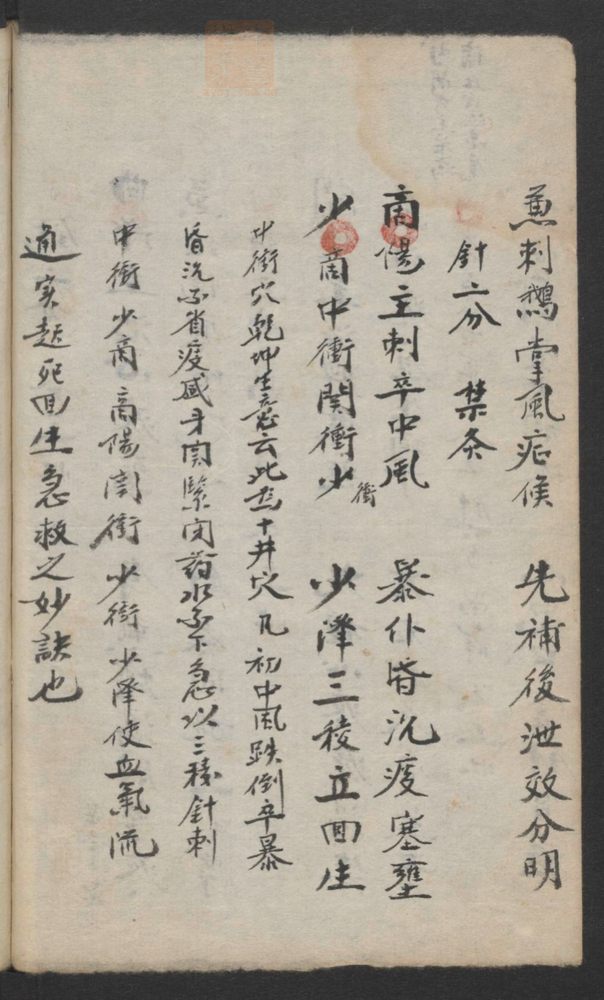 兼刺鵝掌風疟候 先補後泄效分明
針二分 禁灸
商陽主刺卒中風 暴仆昏沉痰塞壅
少商中衝関衝少衝 少澤三稜立回生
中衝穴乾坤生意云此為十井穴凡初中風跌倒卒暴
昏沉不省痰盛牙関緊闭药水不下急以三稜針刺
中衝少商商陽関衝少衝少澤使血氣流
通実起死回生急救之妙訣也